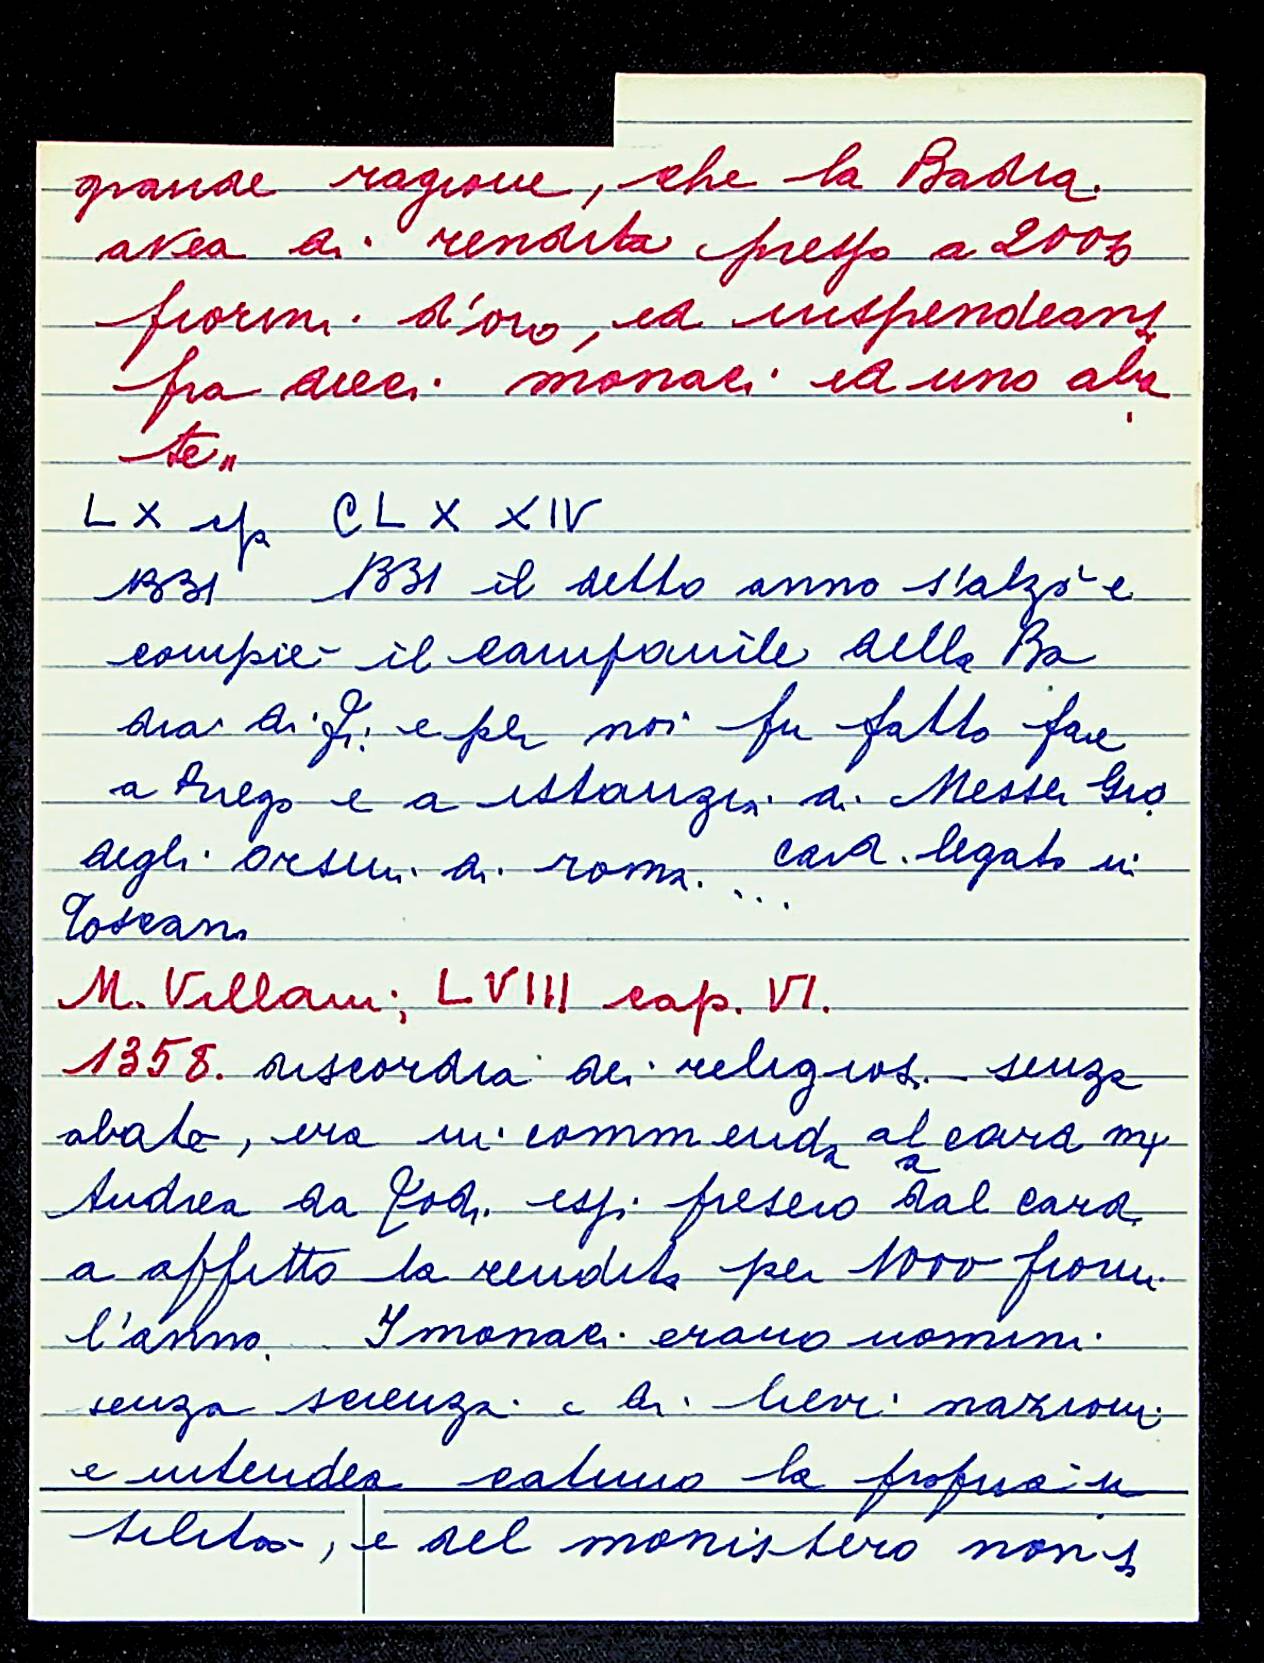 grande ragione, che la Badia
avea di rendita presso a 2000
fiorini d'oro, ed
fra dieci monaci ed uno aba
te"
L X cap CLXXXIV
1331 1331 il detto anno s'alzò e
compiè il campanile della Ba
dia di Fi. e per noi fu fatto fare
a priego e a istanzia di Messer Gio
degli Orsini di roma ... card. legato in
Toscana
M. Villani; L VIII cap. VI.
1358. discordia dei religiosi senza
abate, era in commenda al card
Andrea da Todi. essi presero dal card.
a affitto la rendita per 1000 fiorini
l'anno. I monaci erano uomini
senza scienza e di lievi nazioni
e intendea catuno la propria u
tilità, e del monistero non s